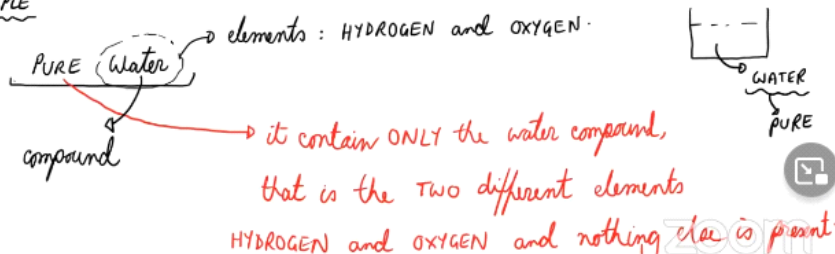 PLE
elements : HYDROGEN and OXYGEN.
PURE Water
WATER
PURE
compound
it contain ONLY the water compound,
that is the TWO different elements
HYDROGEN and OXYGEN and nothing else is present.
zoom